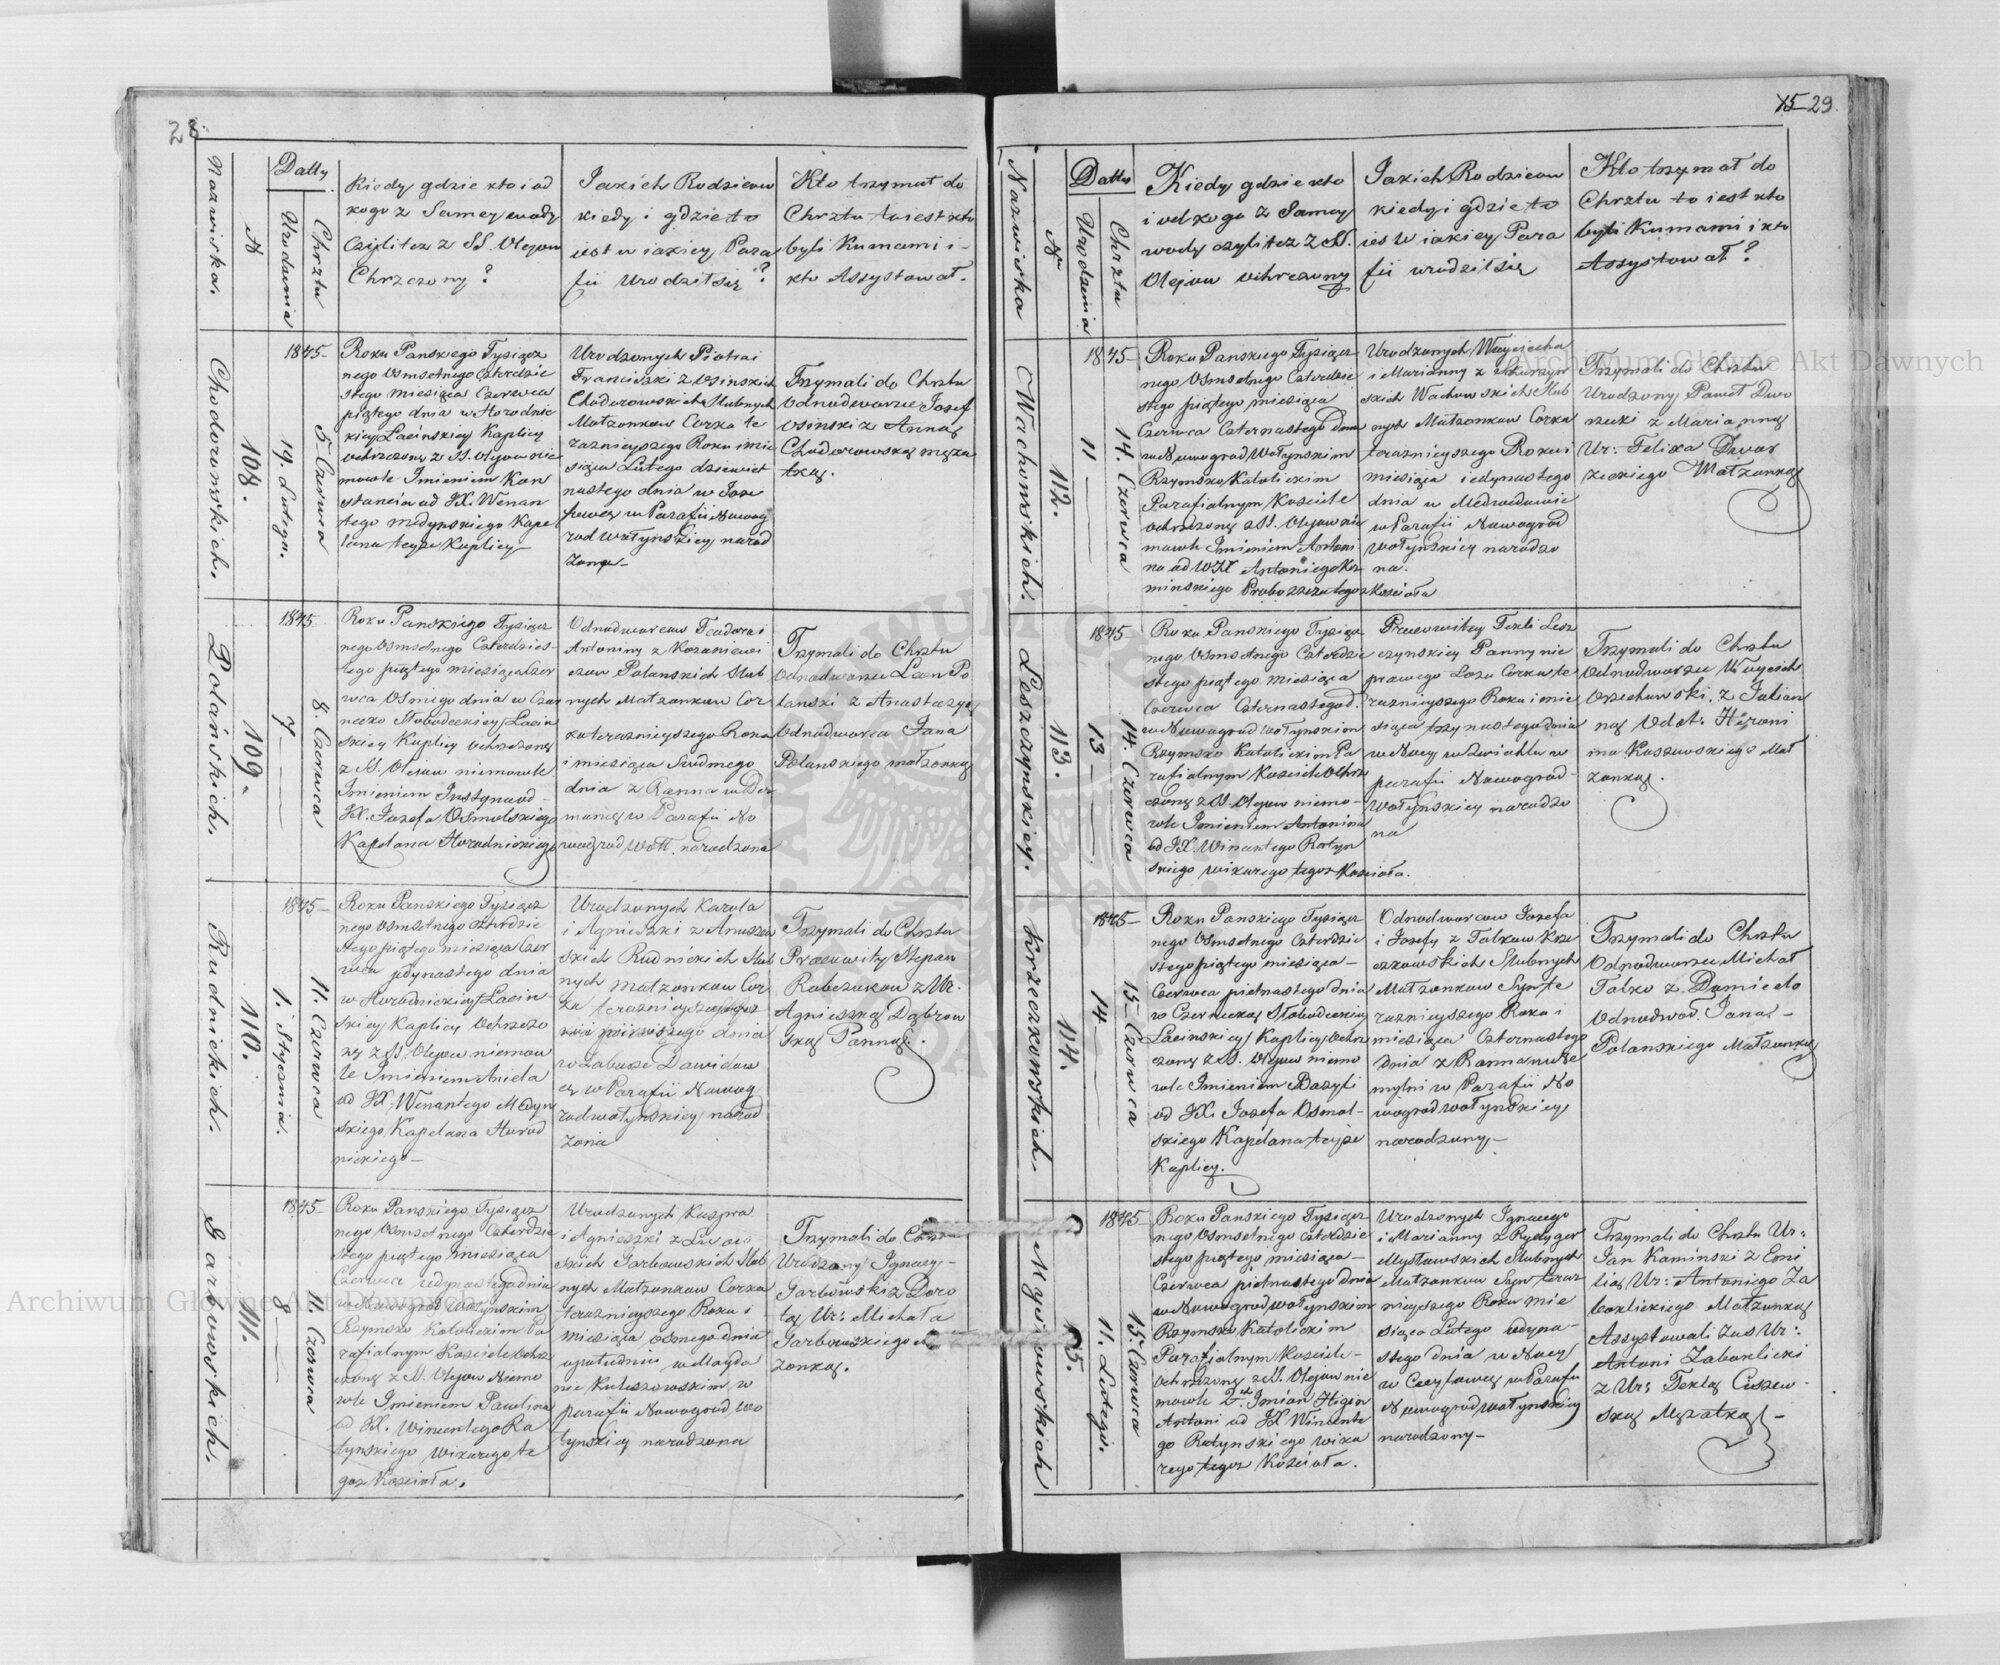 28
Nazwiska.
N
Datty
Urodzenia
Chrztu
Kiedy gdzie kto i od
kogo z Samey wody
Czyli tez z SS. Olejow
Chrzczony?
Jakich Rodzicow
kiedy i gdzie to
iest w iakiey Para
fii Urodził się?
Kto trzymał do
Chrztu to iest kto
byli Kumami i
kto Assystował.
Chodorowskich.
108.
1845
19. Lutego.
5 Czerwca
Roku Panskiego Tysiącz
nego Osmsetnego Czterdzie
stego miesiąca Czerwca
piątego dnia w Horodnic
kiey Łacińskiey Kaplicy
ochrzczony z SS. Olejow nie
mowle Imieniem Kon
stancia od JX. Wenan
tego Medynskiego Kape
lana teyże Kaplicy
Urodzonych Piotra i
Franciszki z Osinskich
Chodorowskich Slubnych
Małzonkow Corka te
raznieyszego Roku i mie
siąca Lutego dziewiet
nastego dnia w Joze
fowce w Parafii Nowog
rod Wołynskiey narod
zona
Trzymali do Chrztu
Odnodworzec Jozef
Osinski z Anną
Chodorowską męża
tką.
Polańskich.
109.
1845
7
8. Czerwca
Roku Panskiego Tysiącz
nego Osmsetnego Czterdzies
tego piątego miesiąca Czer
wca Osmego dnia w Czer
necko Słobodeckiey Łacin
skiey Kaplicy Ochrzczony
z SS. Olejow niemowle
Imieniem Justyna od
JX. Jozefa Osmolskiego
Kapelana Horodnickiego
Odnodworcow Teodora i
Antoniny z
Polanskich Slub
nych Małzonkow Cor
ka teraznieyszego Roku
i miesiąca Siudmego
dnia z Ranna w Der
maney w Parafii No
wogrod Woł. narodzona
Trzymali do Chrztu
Odnodworzec Leon Po
lanski z Anastazyą
Odnodworca Jana
Polanskiego małzonką
Rudnickich.
110.
1845
1. Stycznia.
11. Czerwca
Roku Panskiego Tysiącz
nego Osmsetnego Czterdzie
stego piątego miesiąca Czer
wca jedynastego dnia
w Horodnickiey Łacin
skiey Kaplicy Ochrzczo
ny z SS. Olejow niemow
le Imieniem Aniela
od JX. Wenantego Medyn
skiego Kapelana Horod
nickiego
Urodzonych Karola
i Agnieszki z
skich Rudnickich Slub
nych małzonkow Cor
ka teraznieyszego
pierwszego dnia
w Dawidow
ce w Parafii Nowog
rodwołynskiey narod
zona
Trzymali do Chrztu
Pracowity Stepan
Rabczukow z Ur.
Agnieszką Dąbrow
ską Panną.
Garbowskich.
111.
1845
8
11. Czerwca
Roku Panskiego Tysiącz
nego Osmsetnego Czterdzie
stego piątego miesiąca
Czerwca iedynastego dnia
w Nowogrod Wołynskim
Rzymsko Katolickim Pa
rafialnym Kosciele Ochrz
czony z SS. Olejow Niemo
wle Imieniem Paulina
od JX. Wincentego Ra
tynskiego Wikarego te
goz Koscioła.
Urodzonych Kaspra
i Agnieszki z
skich Garbowskich Slub
nych Małzonkow Corka
teraznieyszego Roku i
miesiąca osmego dnia
w Magda
nie Kuleszowskim w
parafii Nowogrod Wo
łynskiey narodzona
Trzymali do Chrztu
Urodzony Ignacy
Garbowski z Doro
tą Ur: Michała
Garbowskiego
zonką.
15 29.
Nazwiska
Nr
Datta
Urodzenia
Chrztu
Kiedy gdzie kto
i od kogo z Samey
wody czyli tez z SS.
Olejow ochrczony
Jakich Rodzicow
kiedy i gdzie to
iest w iakiey Para
fii urodził się
Kto trzymał do
Chrztu to iest kto
byli Kumami i kto
Assystował?
Wachowskich.
112.
1845
11
14. Czerwca
Roku Panskiego Tysiącz
nego Osmsetnego Czterdzie
stego piątego miesiąca
Czerwca Czternastego dnia
w Nowogrod Wołynskim
Rzymsko Katolickim
Parafialnym Kosciele
ochrzczony z SS. Olejow nie
mowle Imieniem Antoni
na od WJX Antoniego Koz
minskiego Proboszcza tegoz Kościoła
Urodzonych Woyciecha
i Marianny z
skich Wachowskich Slub
nych Małzonkow Corka
teraznieyszego Roku i
miesiąca iedynastego
dnia w Medwedowie
w Parafii Nowogrod
Wołynskiey narodzo
na.
Trzymali do Chrztu
Urodzony Paweł Dwo
rzecki z Marianną
Ur: Felixa Dwor
zeckiego Małzonką
Leszczynskiey.
113.
1845
13
14. Czerwca
Roku Panskiego Tysiącz
nego Osmsetnego Czterdzie
stego piątego miesiąca
Czerwca Czternastego d.
w Nowogrod Wołynskim
Rzymsko Katolickim Pa
rafialnym Kosciele Ochrz
czony z SS. Olejow niemo
wle Imieniem Antonina
od JX. Wincentego Ratyn
skiego wikarego tegoz Kościoła.
Pracowitey Tekli Lesz
czynskiey Panny nie
prawego Łoza Corka te
raznieyszego Roku i mie
siąca trzynastego dnia
w Nowey w
parafii Nowogrod
Wołynskiey narodzo
na
Trzymali do Chrztu
Odnodworzec Woyciech
Orzechowski z Julian
ną Odet. Hieroni
ma Kuszewskiego Mał
zonką.
Krzeczkowskich.
114.
1845
14
15 Czerwca
Roku Panskiego Tysiącz
nego Osmsetnego Czterdzie
stego piątego miesiąca
Czerwca pietnastego dnia
w Czerneckey Słobodeckiey
Łacinskiey Kaplicy, ochrz
czony z SS. Olejow niemo
wle Imieniem Bazyli
od JX. Jozefa Osmol
skiego Kapelana teyże
Kaplicy.
Odnodworcow Jozefa
i Jozefy z Talkow Krze
czkowskich Slubnych
Małzonkow Syn te
raznieyszego Roku i
miesiąca Czternastego
dnia z Ranna
w Parafii No
wogrod wołynskiey
narodzony
Trzymali do Chrztu
Odnodworzec Michał
Talko z
Odnodwor. Jana
Polanskiego Małzonką
Mysłowskich
115.
1845
11. Lutego.
15. Czerwca
Roku Panskiego Tysiącz
nego Osmsetnego Czterdzie
stego piątego miesiąca
Czerwca pietnastego dnia
w Nowogrod wołynskim
Rzymsko Katolickim
Parafialnym Kosciele
Ochrzczony z SS. Olejow nie
mowle 2ch Imion Higin
Antoni od JX Wincente
go Ratynskiego wika
rego tegoz Kościoła.
Urodzonych Ignacego
i Marianny z Rydyger
Mysłowskich Slubnych
Małzonkow Syn teraz
nieyszego Roku Mie
siąca Lutego iedyna
stego dnia w Nowey
w w Parafii
Nowogrod wołynskiey
narodzony
Trzymali do Chrztu Ur:
Jan Kaminski z Emi
lią Ur: Antoniego Za
boklickiego Małzonką
Assystowali zas Ur:
Antoni Zaboklicki
z Ur: Teklą Ciszew
ską Męzatką
Archiwum Główne Akt Dawnych
Archiwum Główne Akt Dawnych